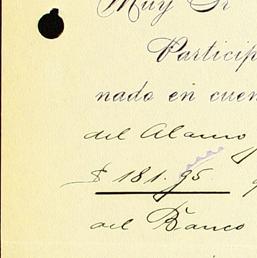 Muy Sr
Particip
nado en cuen
del Alamo
$ 181.95
del Banco